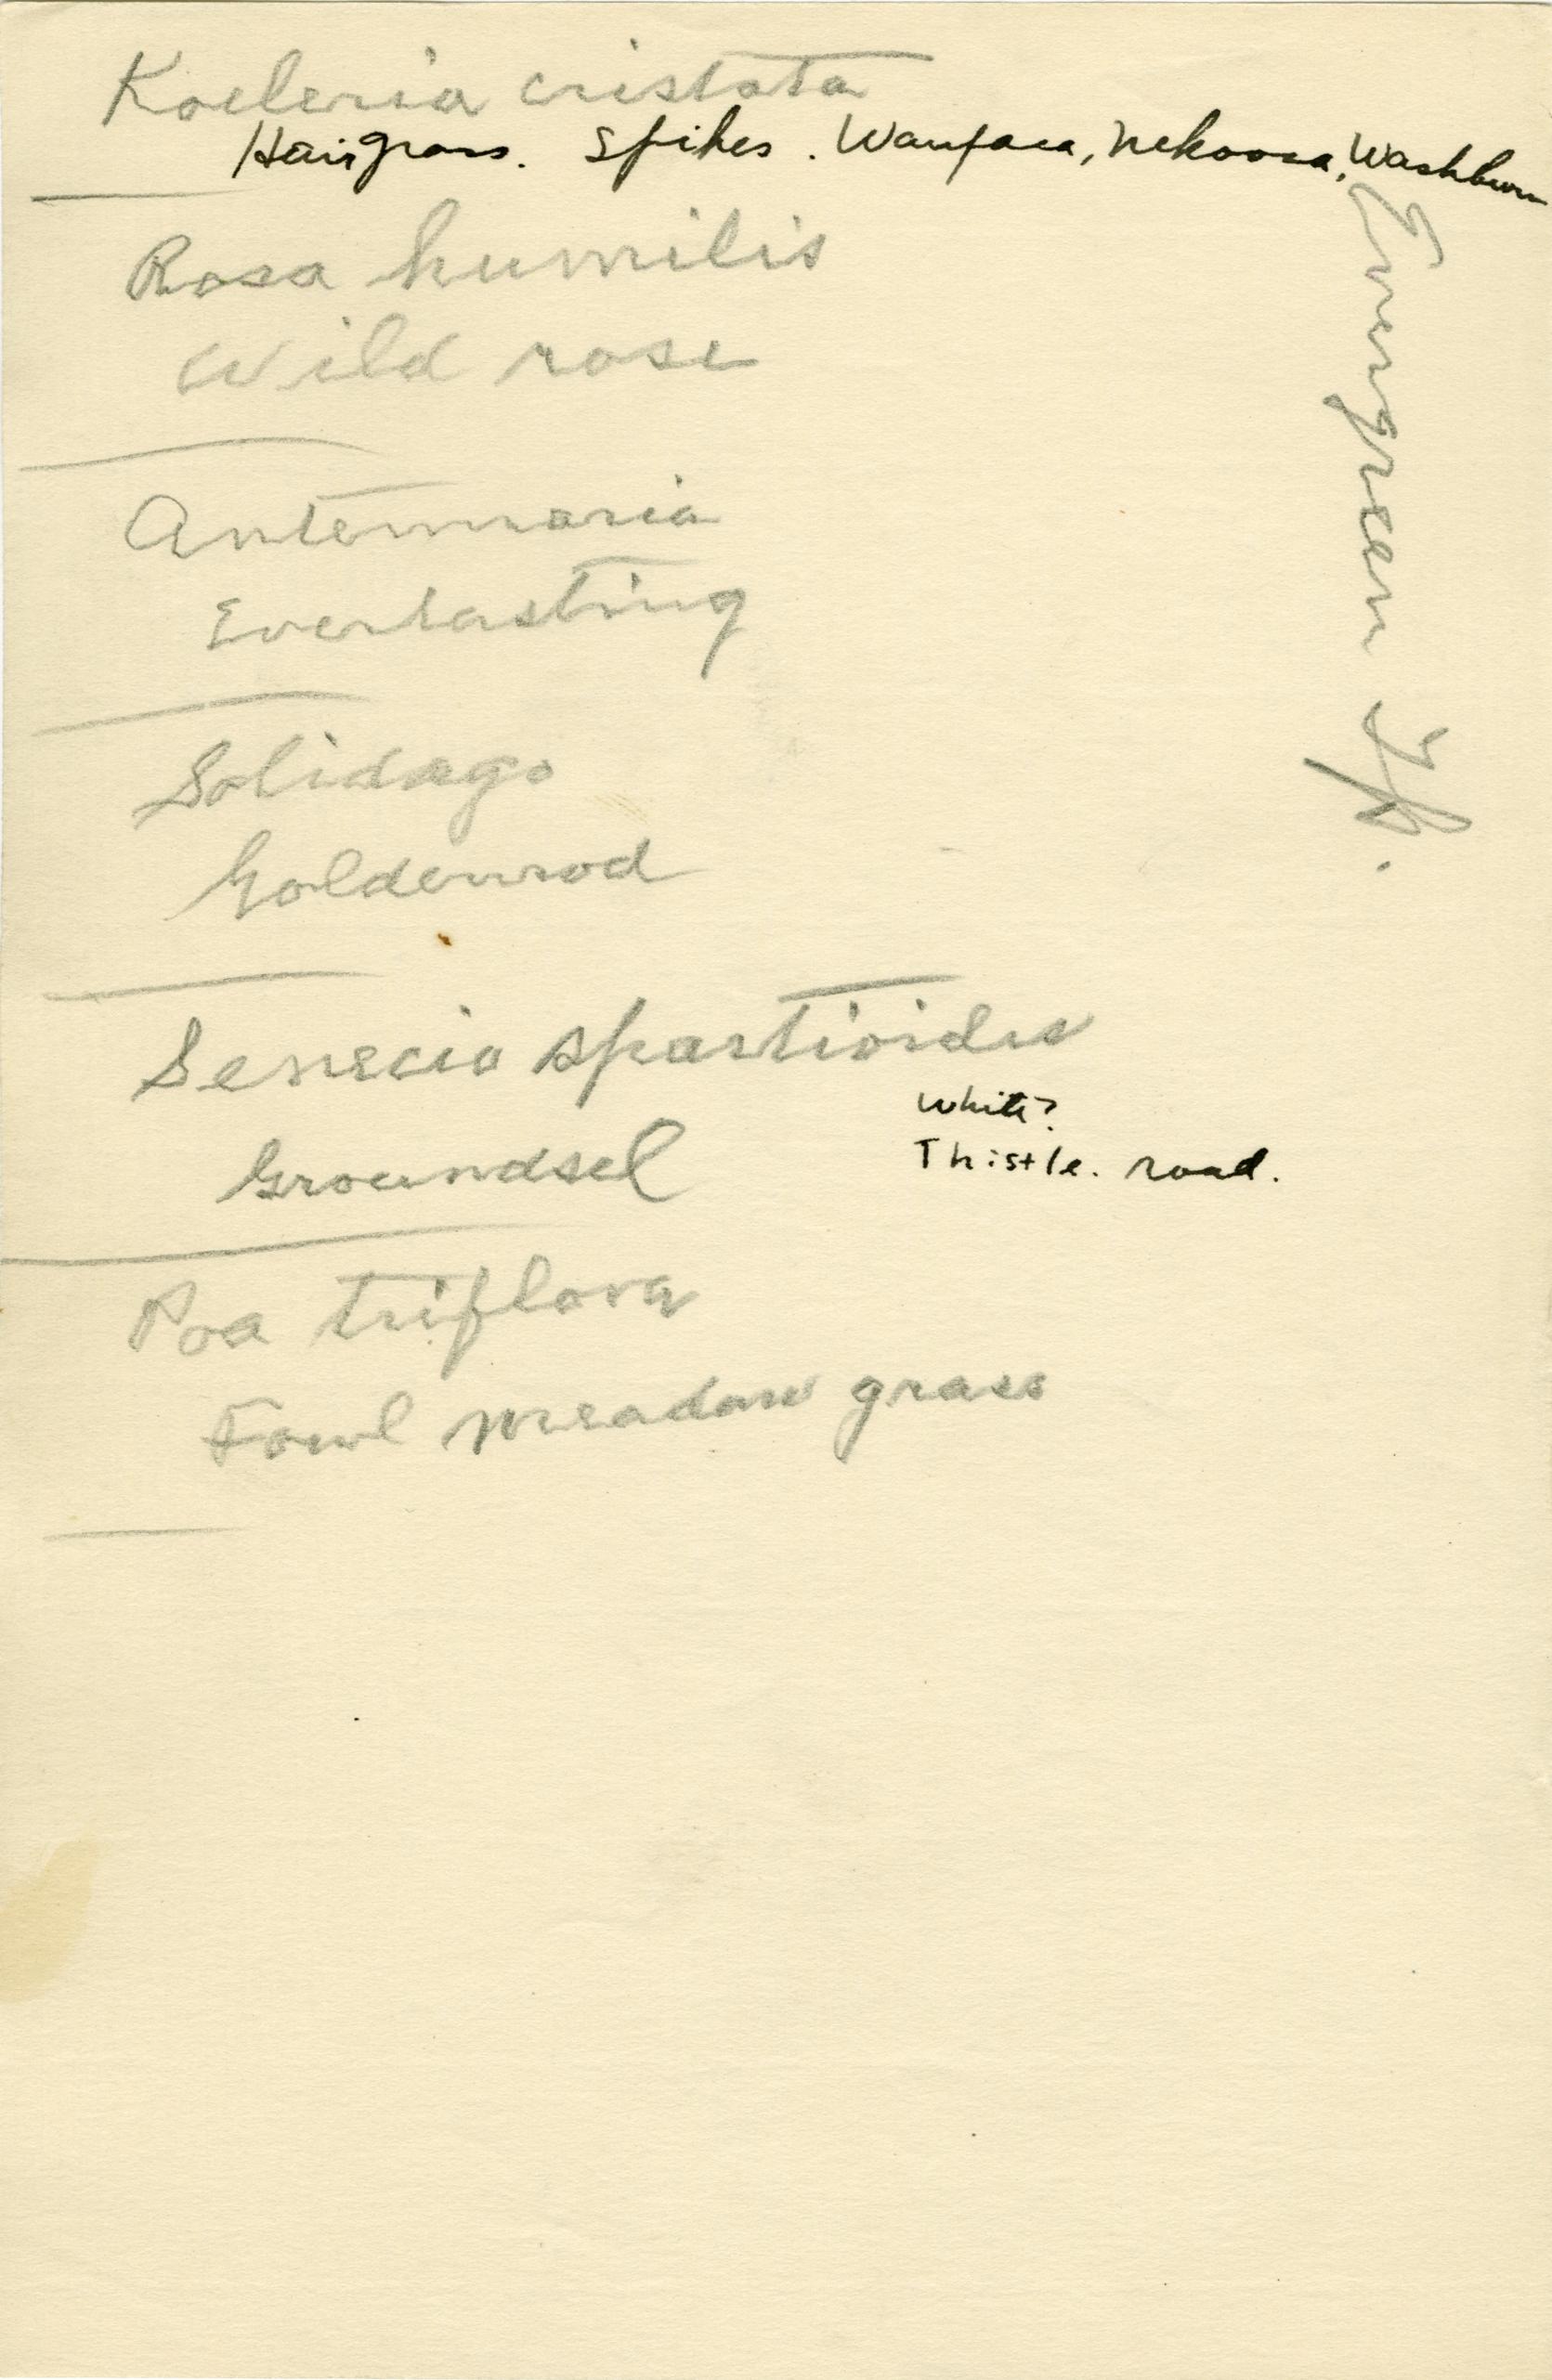 Koeleria cristata
Hairgrass. Spikes. Waupaca, Nekoosa, Washburn
Rosa humilis
Wild rose
Antennaria
Everlasting
Solidago
Goldenrod
Senecio spartioides
White?
Thistle. road.
Groundsel
Poa triflora
Fowl meadow grass
Evergreen